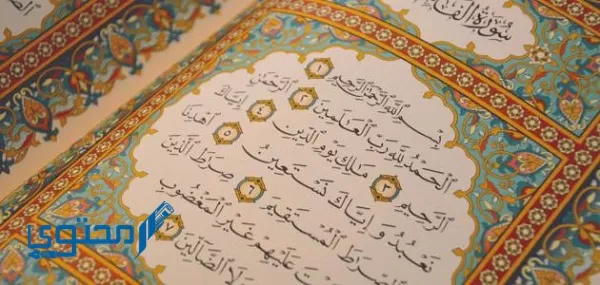 سُورَةُ الفَا
بِسْمِ ٱللَّهِ ٱلرَّحْمَٰنِ ٱلرَّحِيمِ ١
ٱلْحَمْدُ لِلَّهِ رَبِّ ٱلْعَٰلَمِينَ ٢ ٱلرَّحْمَٰنِ
ٱلرَّحِيمِ ٣ مَٰلِكِ يَوْمِ ٱلدِّينِ ٤ إِيَّاكَ
نَعْبُدُ وَ إِيَّاكَ نَسْتَعِينُ ٥ ٱهْدِنَا
ٱلصِّرَٰطَ ٱلْمُسْتَقِيمَ ٦ صِرَٰطَ ٱلَّذِينَ
ـتَ عَلَيْهِمْ غَيْرِ ٱلْمَغْضُوبِ
وَلَا ٱلضَّآلِّينَ ٧
محتوى